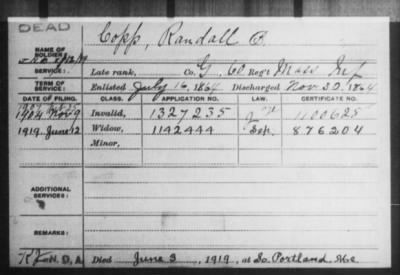 DEAD
Copp, Randall B.
NAME OF SOLDIER:
SERVICE: Late rank, Co. G, 60 Reg't Mass Inf
TERM OF SERVICE: Enlisted July 16, 1864 Discharged Nov 30, 1864
DATE OF FILING. CLASS. APPLICATION NO. LAW. CERTIFICATE NO.
1904 Nov 9 Invalid, 1327235 1100625
1919 June 12 Widow, 1142444 Sep. 876204
Minor,
ADDITIONAL SERVICES:
Died June 3, 1919, at So. Portland, Me